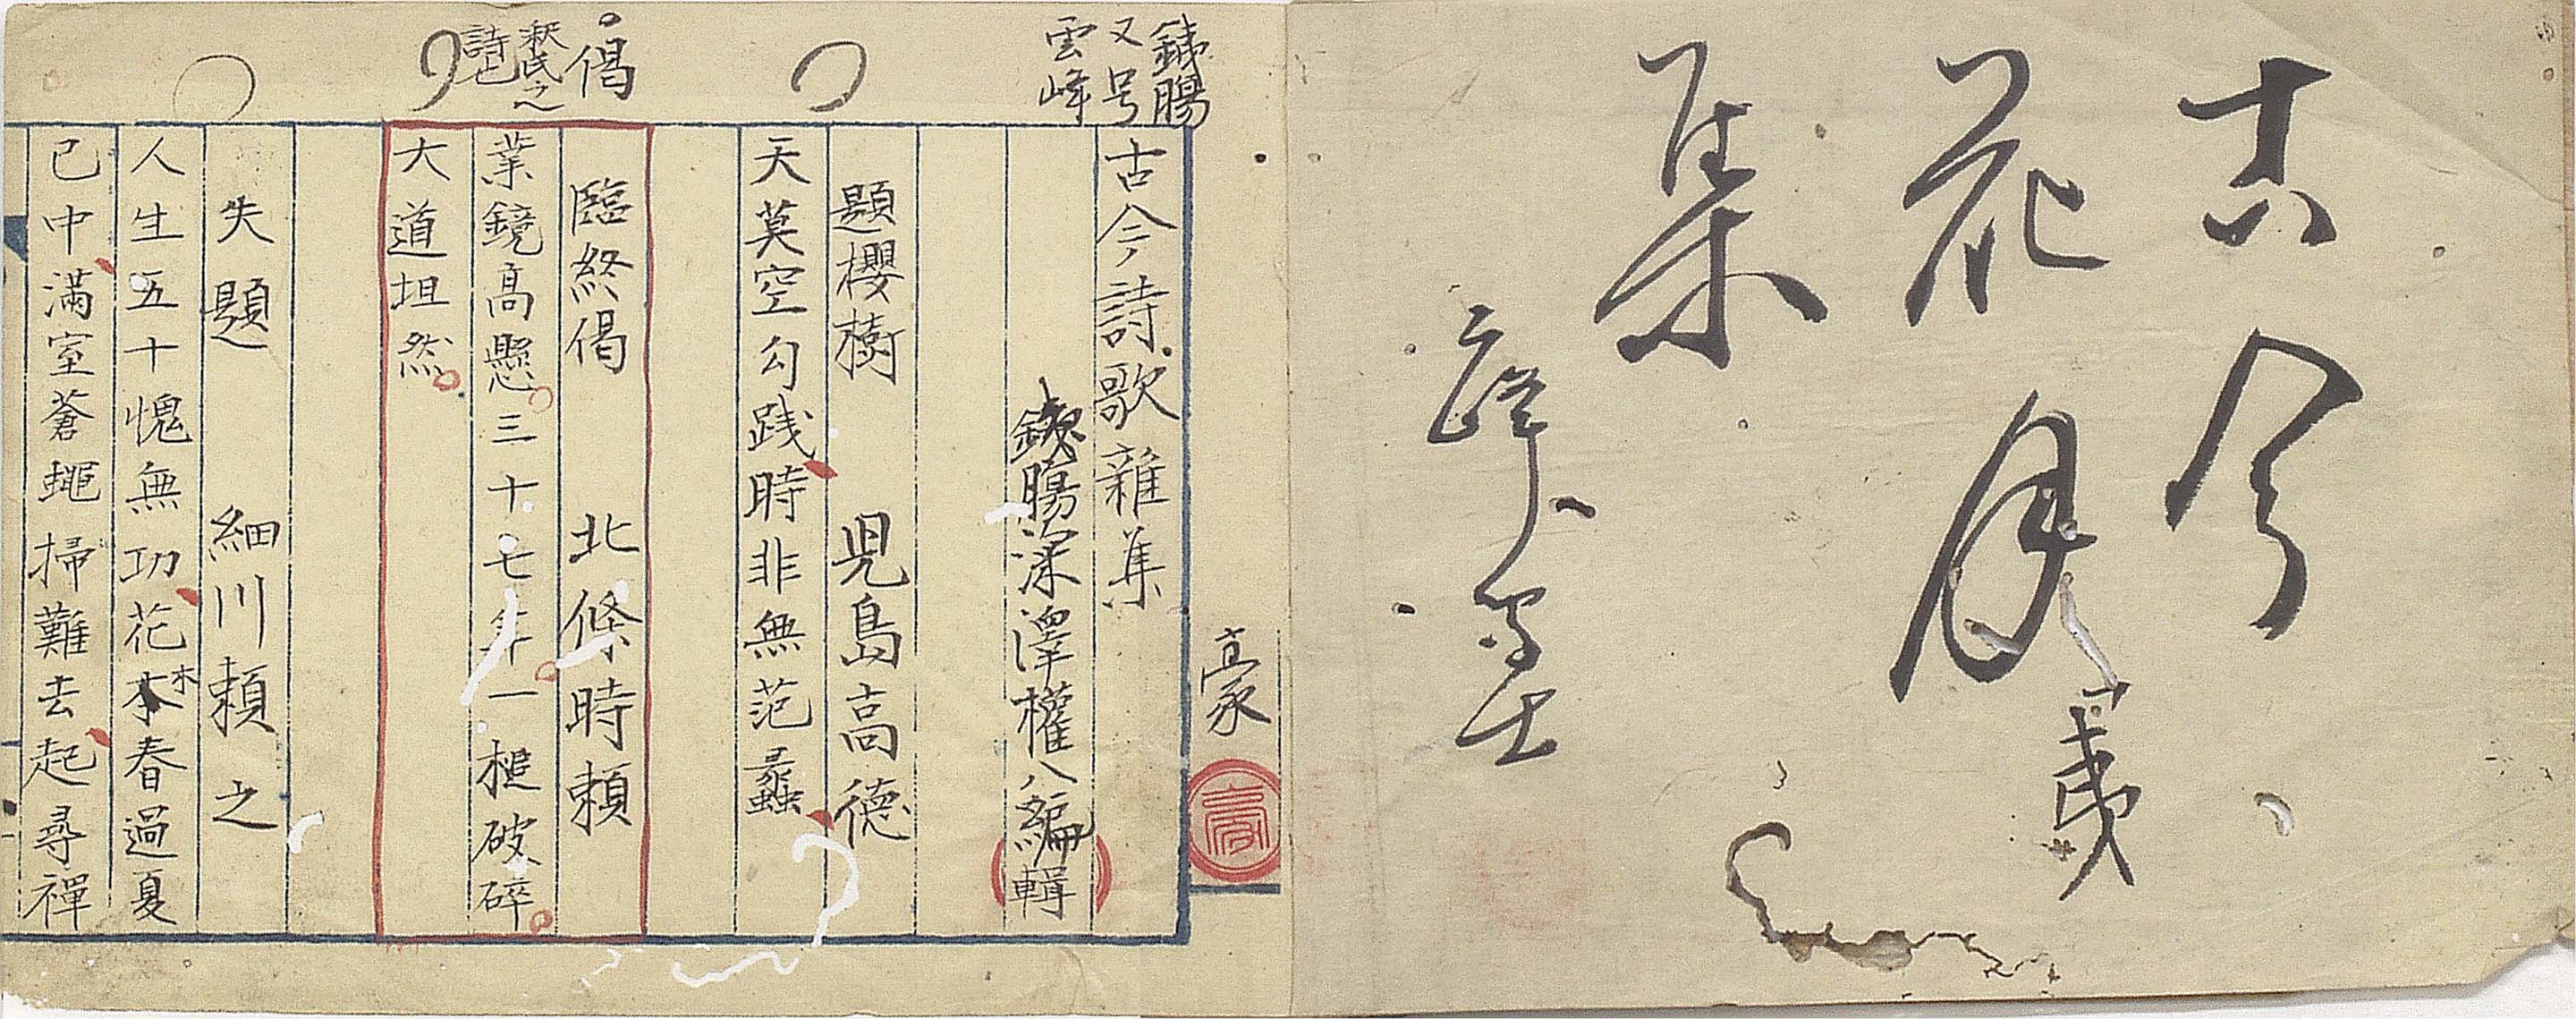 古今
花月
集
豪
鐵腸
又号
雲峰
古今詩歌雑集
鐵腸深澤權八編輯
題櫻樹 児島高徳
天莫空勾践時非無范蠡
偈
釈氏之
詩也
臨終偈 北條時頼
業鏡高懸三十七年一槌破碎
大道坦然
失題 細川頼之
人生五十愧無功花木春過夏
已中滿室蒼蠅掃難去起尋禪